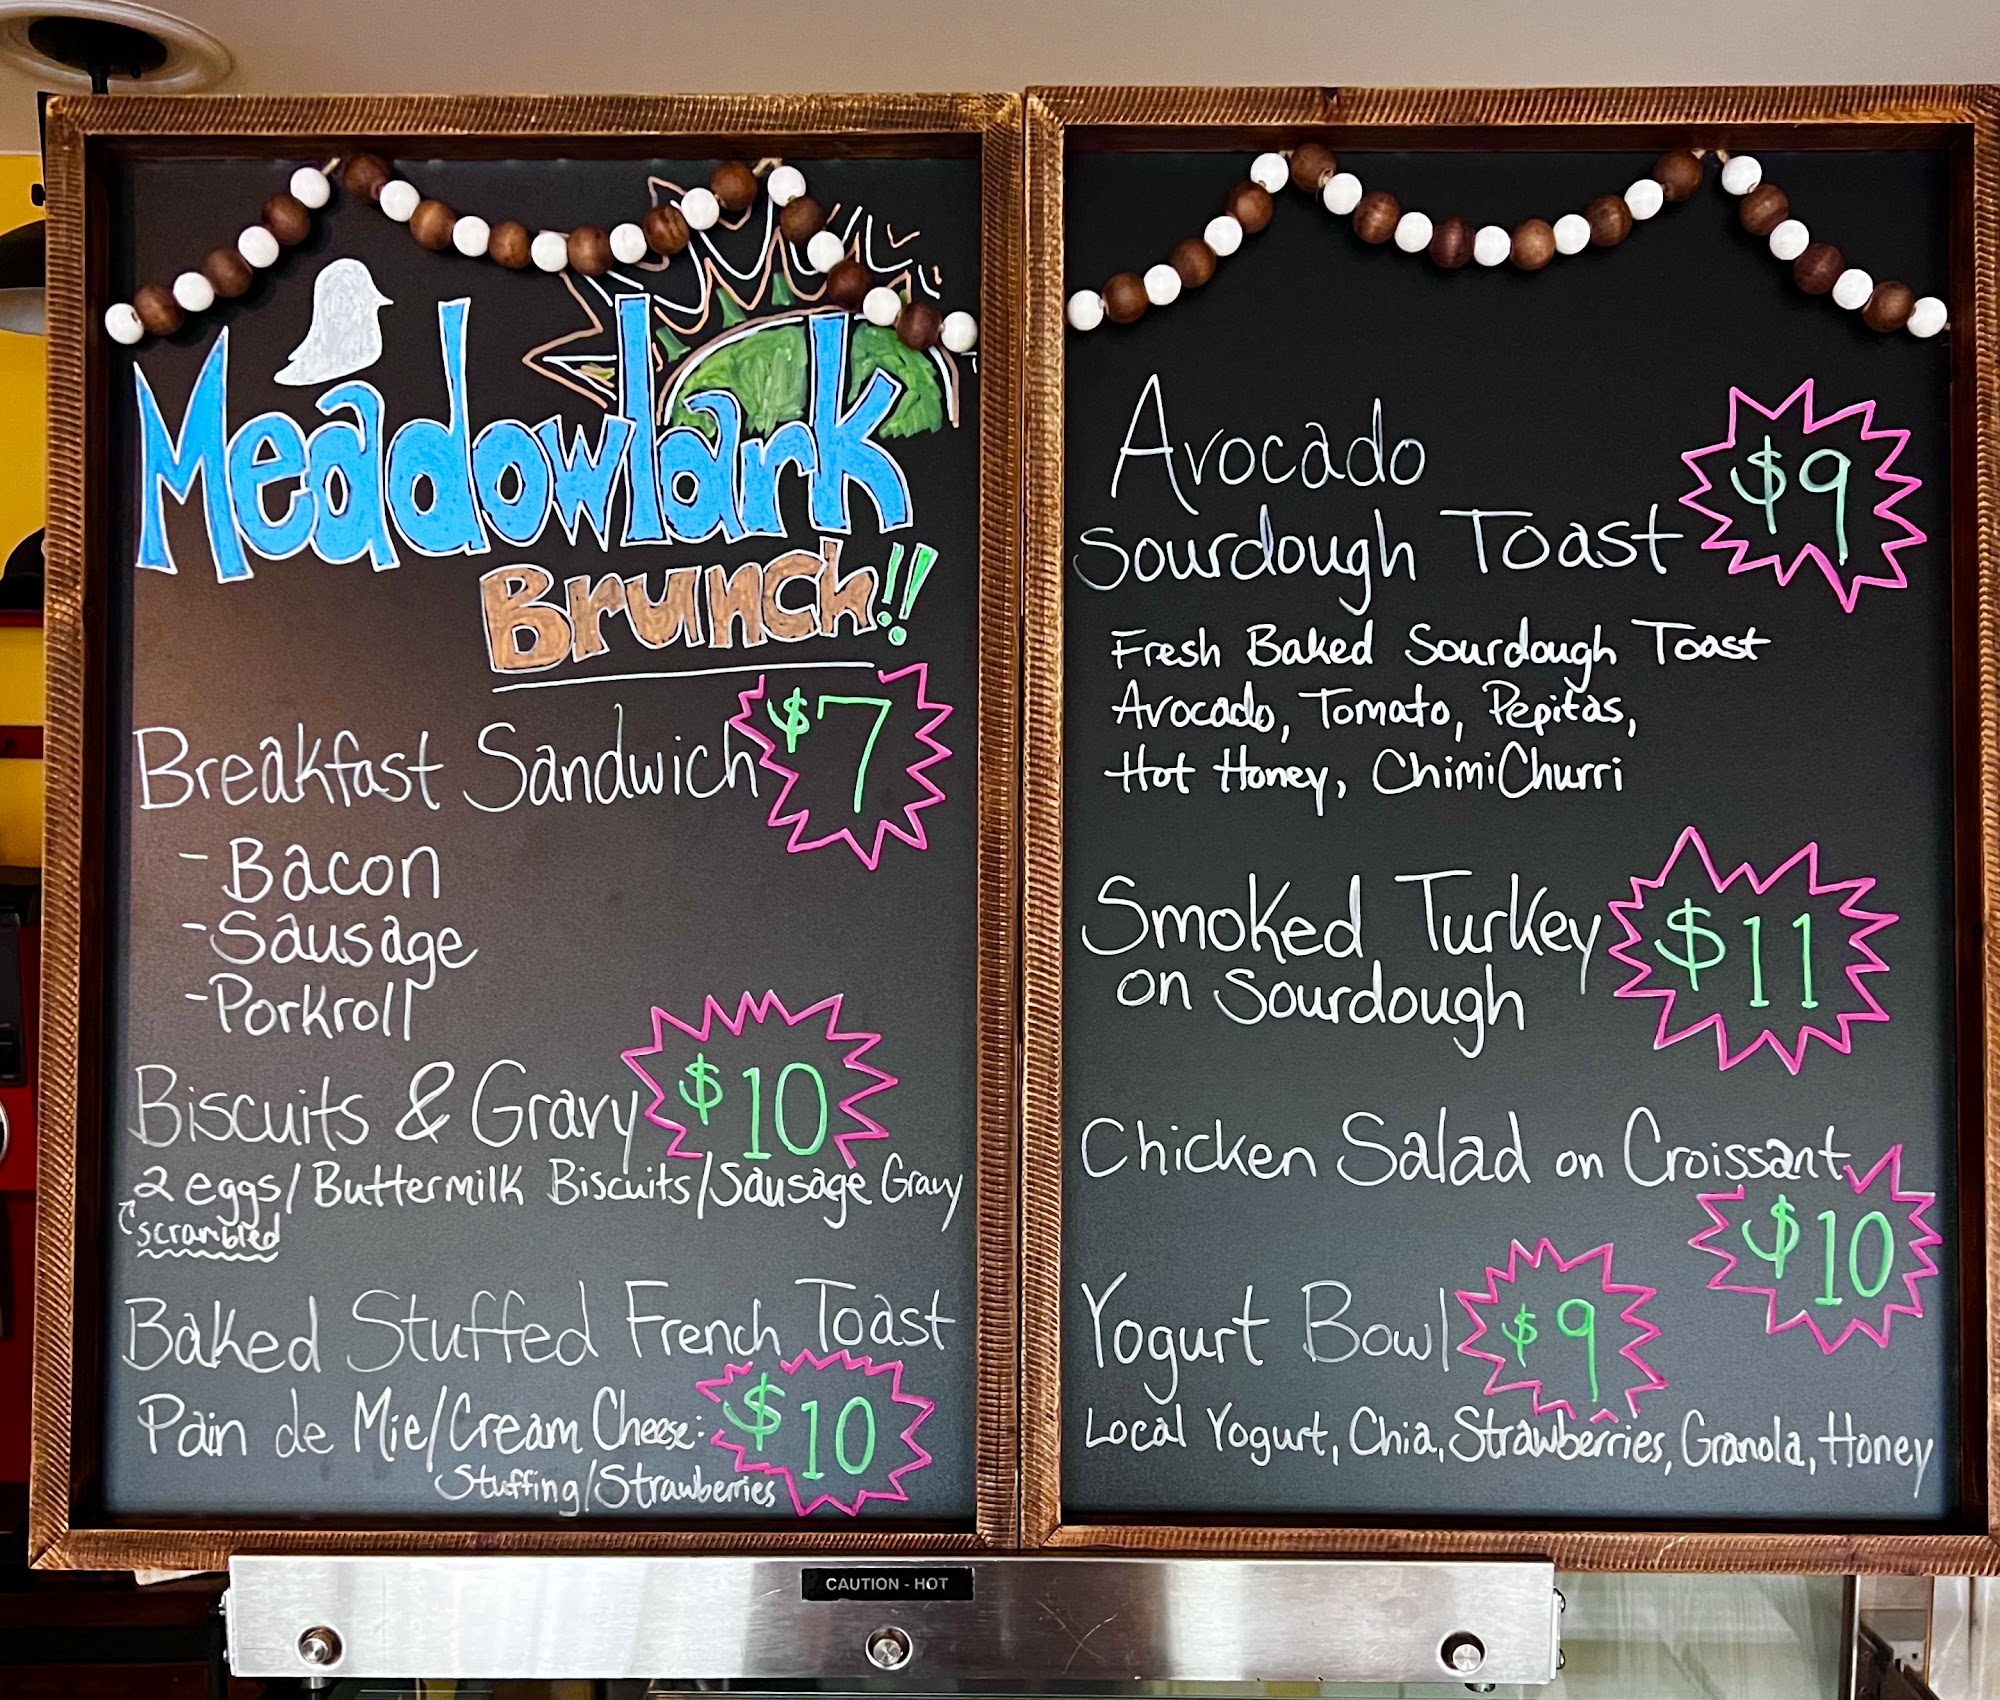 Meadowlark
Brunch!!
Breakfast Sandwich $7
-Bacon
-Sausage
-Porkroll
Biscuits & Gravy $10
2 eggs/Buttermilk Biscuits/Sausage Gravy
scrambled
Baked Stuffed French Toast
Pain de Mie/Cream Cheese: $10
Stuffing/Strawberries
Avocado
Sourdough Toast $9
Fresh Baked Sourdough Toast
Avocado, Tomato, Pepitas,
Hot Honey, ChimiChurri
Smoked Turkey $11
on Sourdough
Chicken Salad on Croissant
$10
Yogurt Bowl $9
Local Yogurt, Chia, Strawberries, Granola, Honey
CAUTION - HOT